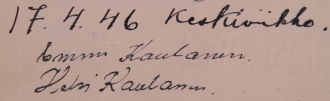 17.4.46 Keskiviikko.
Emmi Kaulanen.
Helvi Kaulanen.